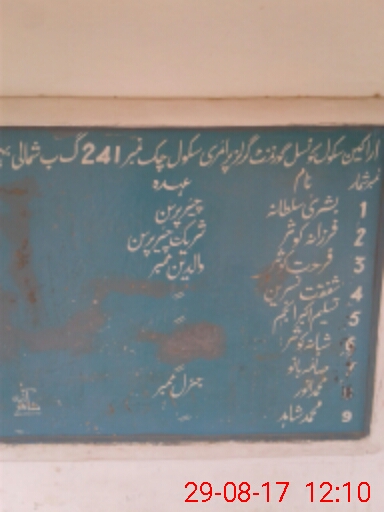 اراکین سکول کونسل گورنمنٹ گرلز پرائمری سکول چک نمبر 241 گ ب شمالی
نمبر شمار نام عہدہ
1 بشریٰ سلطانہ چیئرپرسن
2 فرزانہ کوثر شریک چیئرپرسن
3 فرحت کوثر والدین ممبر
4 شفقت نسرین 〃
5 تسلیم اکبر انجم 〃
6 شبانہ کوثر
7 صائمہ بانو
8 محمد انور جنرل ممبر
9 محمد شاہد 〃
29-08-17 12:10